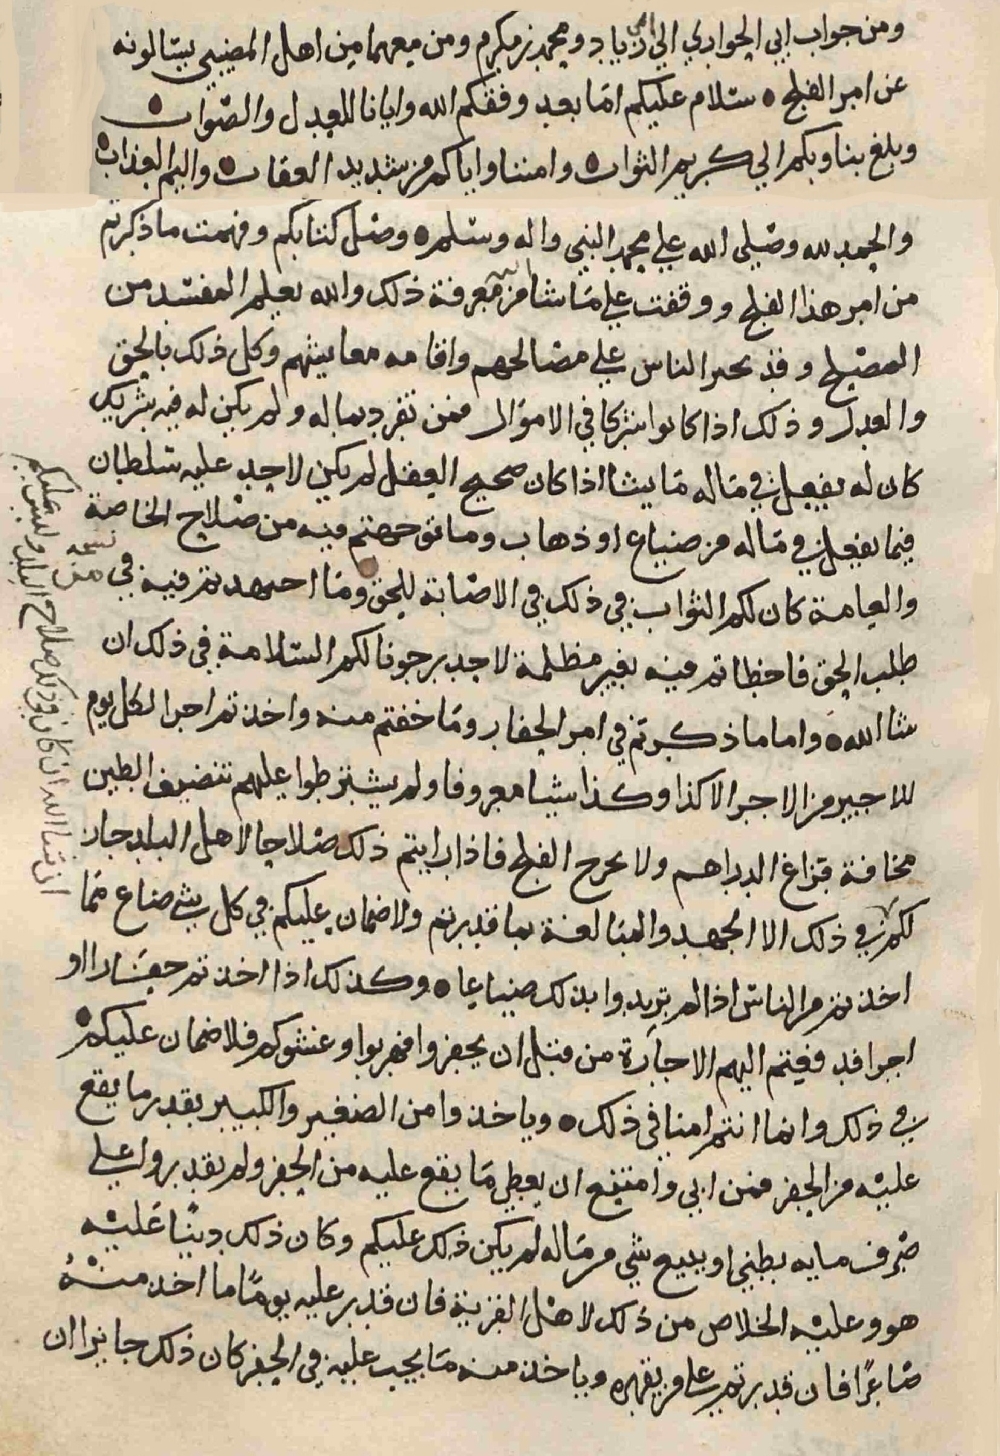 ومن جواب ابي الحواري الي ابي زياد ومحمد بن مكرم ومن معهما من اهل المضيبي يسالونه
عن امر الفلج سلام عليكم اما بعد وفقكم الله وايانا للعدل والصواب
وبلغ بنا وبكم الي كريم الثواب وامننا واياكم من شديد العقاب واليم العذاب
والحمد لله وصلي الله علي محمد النبي واله وسلم وصل كتابكم وفهمت ما ذكرتم
من امر هذا الفلج ووقفت علي ما شا من معرفة ذلك والله يعلم المفسد من
المصلح وقد يجبر الناس علي مصالحهم واقامه معايشهم وكل ذلك بالحق
والعدل وذلك اذا كانوا شركا في الاموال فمن تفرد بماله ولم يكن له فيه شريك
كان له يفعل في ماله ما يشا اذا كان صحيح العقل لم يكن لاحد عليه سلطان
فيما يفعل في ماله من ضياع او ذهاب وما توجهتم فيه من صلاح الخاصة
والعامة كان لكم الثواب في ذلك في الاصابة للحق وما اجتهدتم فيه في
طلب الحق فاخطاتم فيه بغير مظلمة لاحد رجونا لكم السلامة في ذلك ان
شا الله واما ما ذكرتم في امر الحفار وما خفتم منه واخذتم اجرا لكل يوم
للاجير من الاجر الا كذا وكذا شيا معروفا ولم يشترطوا عليهم تنضيف الطين
مخافة فراغ الدراهم ولا يخرج الفلج فاذا رايتم ذلك صلاحا لاهل البلد جاز
لكم في ذلك الا الجهد والمبالغة بما قدرتم ولا ضمان عليكم في كل شي ضاع مما
اخذتم من الناس اذا لم تريدوا بذلك ضياعا وكذلك اذا اخذتم حفارا او
اجرا فدفعتم اليهم الاجارة من قبل ان يحفروا فهربوا وغشوكم فلا ضمان عليكم
في ذلك وانما انتم امنا في ذلك وياخذوا من الصغير والكبير بقدر ما يقع
عليه من الحفر فمن ابي وامتنع ان يعطي ما يقع عليه من الحفر ولم يقدروا علي
صرف مايه بطني او ببيع شي من ماله لم يكن ذلك عليكم وكان ذلك دينا عليه
هو وعليه الخلاص من ذلك لاهل القرية فان قدر عليه يوما ما اخذ منه
صاغرا فان قدرتم علي من يقهره وياخذ منه ما يجب عليه في الحفر كان ذلك جايزا ان
نسخة
من
ان شا الله ان كان في ذلك صلاح البلد وليس عليكم